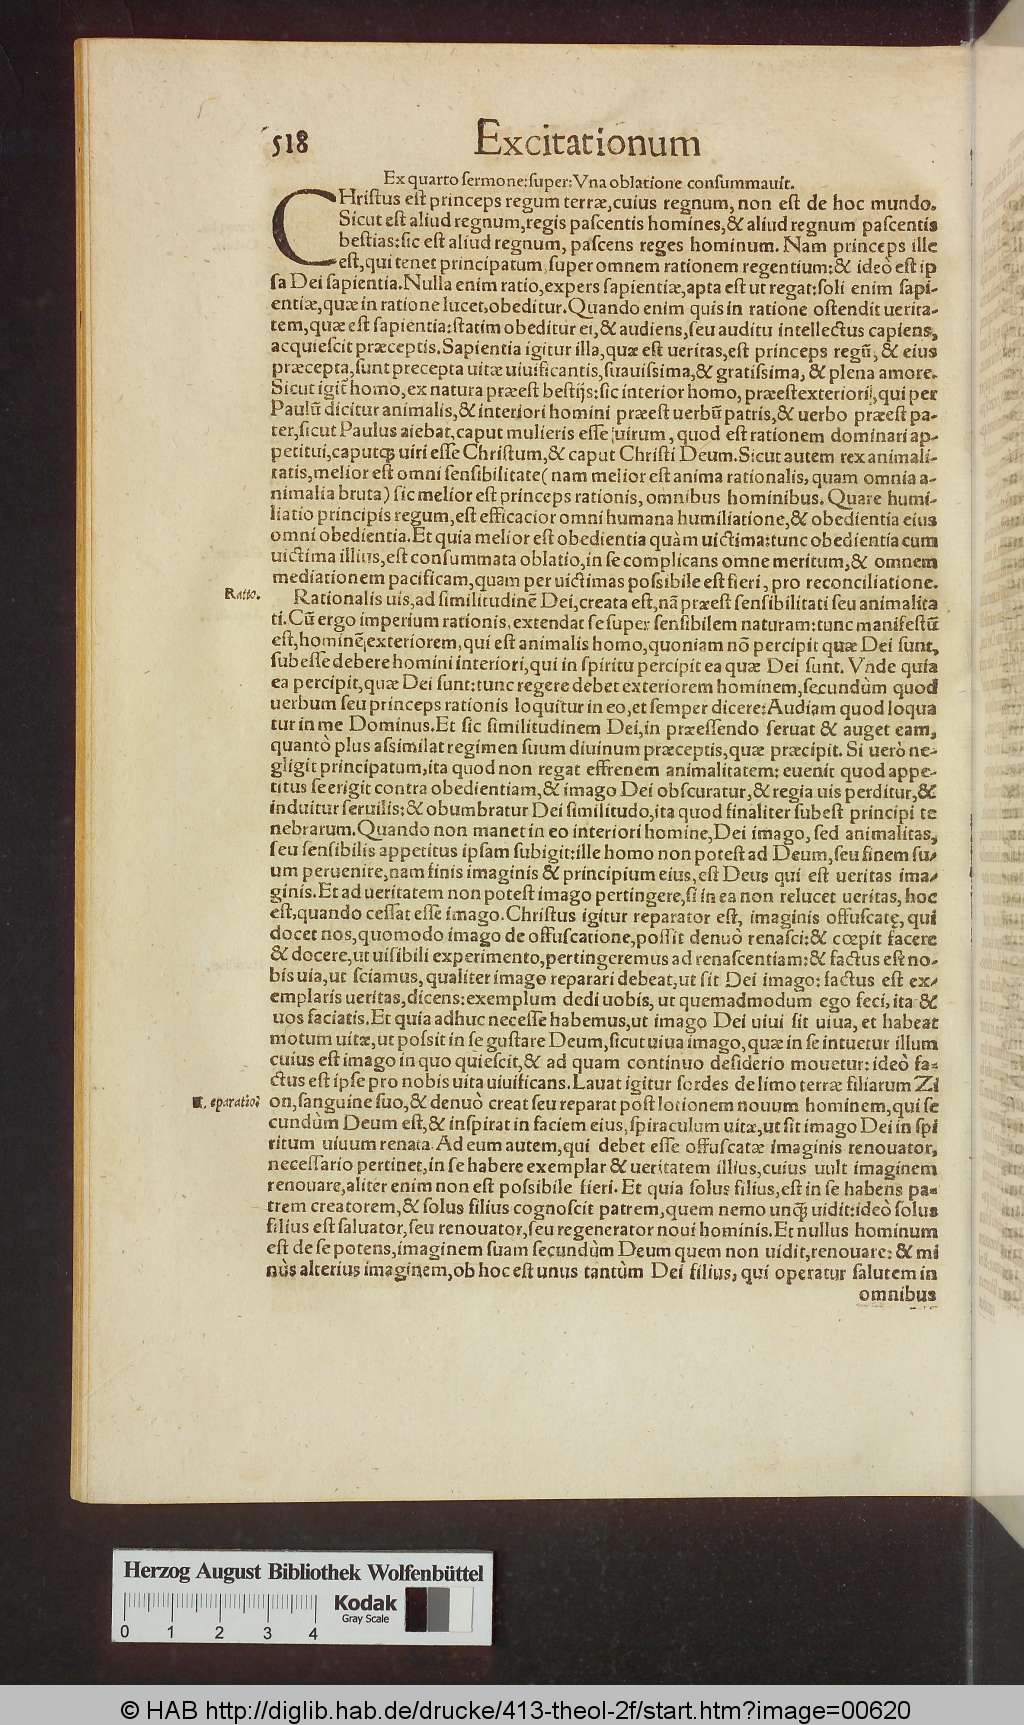 518 Excitationum
Ex quarto sermone: super: Vna oblatione consummauit.
CHristus est princeps regum terræ, cuius regnum, non est de hoc mundo.
Sicut est aliud regnum, regis pascentis homines, & aliud regnum pascentis
bestias: sic est aliud regnum, pascens reges hominum. Nam princeps ille
est, qui tenet principatum super omnem rationem regentium: & ideò est ip
sa Dei sapientia. Nulla enim ratio, expers sapientiæ, apta est ut regat: soli enim sapi-
entiæ, quæ in ratione lucet, obeditur. Quando enim quis in ratione ostendit uerita-
tem, quæ est sapientia: statim obeditur ei, & audiens, seu auditu intellectus capiens,
acquiescit præceptis. Sapientia igitur illa, quæ est ueritas, est princeps regũ, & eius
præcepta, sunt precepta uitæ uiuificantis, suauissima, & gratissima, & plena amore.
Sicut igit̃ homo, ex natura præest bestijs: sic interior homo, præest exteriori, qui per
Paulũ dicitur animalis, & interiori homini præest uerbũ patris, & uerbo præest pa-
ter, sicut Paulus aiebat, caput mulieris esse uirum, quod est rationem dominari ap-
petitui, caputq́; uiri esse Christum, & caput Christi Deum. Sicut autem rex animali-
tatis, melior est omni sensibilitate (nam melior est anima rationalis, quam omnia a-
nimalia bruta) sic melior est princeps rationis, omnibus hominibus. Quare humi-
liatio principis regum, est efficacior omni humana humiliatione, & obedientia eius
omni obedientia. Et quia melior est obedientia quàm uictima: tunc obedientia cum
uictima illius, est consummata oblatio, in se complicans omne meritum, & omnem
mediationem pacificam, quam per uictimas possibile est fieri, pro reconciliatione.
Ratio.
Rationalis uis, ad similitudinẽ Dei, creata est, nã præest sensibilitati seu animalita
ti. Cũ ergo imperium rationis, extendat se super sensibilem naturam: tunc manifestũ
est, hominẽ exteriorem, qui est animalis homo, quoniam nõ percipit quæ Dei sunt,
subesse debere homini interiori, qui in spiritu percipit ea quæ Dei sunt. Vnde quia
ea percipit, quæ Dei sunt: tunc regere debet exteriorem hominem, secundùm quod
uerbum seu princeps rationis loquitur in eo, et semper dicere: Audiam quod loqua
tur in me Dominus. Et sic similitudinem Dei, in præessendo seruat & auget eam,
quantò plus assimilat regimen suum diuinum præceptis, quæ præcipit. Si uerò ne-
gligit principatum, ita quod non regat effrenem animalitatem: euenit quod appe-
titus se erigit contra obedientiam, & imago Dei obscuratur, & regia uis perditur, &
induitur seruilis: & obumbratur Dei similitudo, ita quod finaliter subest principi te
nebrarum. Quando non manet in eo interiori homine, Dei imago, sed animalitas,
seu sensibilis appetitus ipsam subigit: ille homo non potest ad Deum, seu finem su-
um peruenire, nam finis imaginis & principium eius, est Deus qui est ueritas ima-
ginis. Et ad ueritatem non potest imago pertingere, si in ea non relucet ueritas, hoc
est, quando cessat esse imago. Christus igitur reparator est, imaginis offuscatę, qui
docet nos, quomodo imago de offuscatione, possit denuò renasci: & cœpit facere
& docere, ut uisibili experimento, pertingeremus ad renascentiam: & factus est no-
bis uia, ut sciamus, qualiter imago reparari debeat, ut sit Dei imago: factus est ex-
emplaris ueritas, dicens: exemplum dedi uobis, ut quemadmodum ego feci, ita &
uos faciatis. Et quia adhuc necesse habemus, ut imago Dei uiui sit uiua, et habeat
motum uitæ, ut possit in se gustare Deum, sicut uiua imago, quæ in se intuetur illum
cuius est imago in quo quiescit, & ad quam continuo desiderio mouetur: ideò fa-
ctus est ipse pro nobis uita uiuificans. Lauat igitur sordes de limo terræ filiarum Zi
eparatio
on, sanguine suo, & denuò creat seu reparat post lotionem nouum hominem, qui se
cundùm Deum est, & inspirat in faciem eius, spiraculum uitæ, ut sit imago Dei in spi
ritum uiuum renata. Ad eum autem, qui debet esse offuscatæ imaginis renouator,
necessario pertinet, in se habere exemplar & ueritatem illius, cuius uult imaginem
renouare, aliter enim non est possibile fieri. Et quia solus filius, est in se habens pa-
trem creatorem, & solus filius cognoscit patrem, quem nemo unq̃ uidit: ideò solus
filius est saluator, seu renouator, seu regenerator noui hominis. Et nullus hominum
est de se potens, imaginem suam secundùm Deum quem non uidit, renouare: & mi
nùs alterius imaginem, ob hoc est unus tantùm Dei filius, qui operatur salutem in
omnibus
Herzog August Bibliothek Wolfenbüttel
Kodak
Gray Scale
0 1 2 3 4
© HAB http://diglib.hab.de/drucke/413-theol-2f/start.htm?image=00620